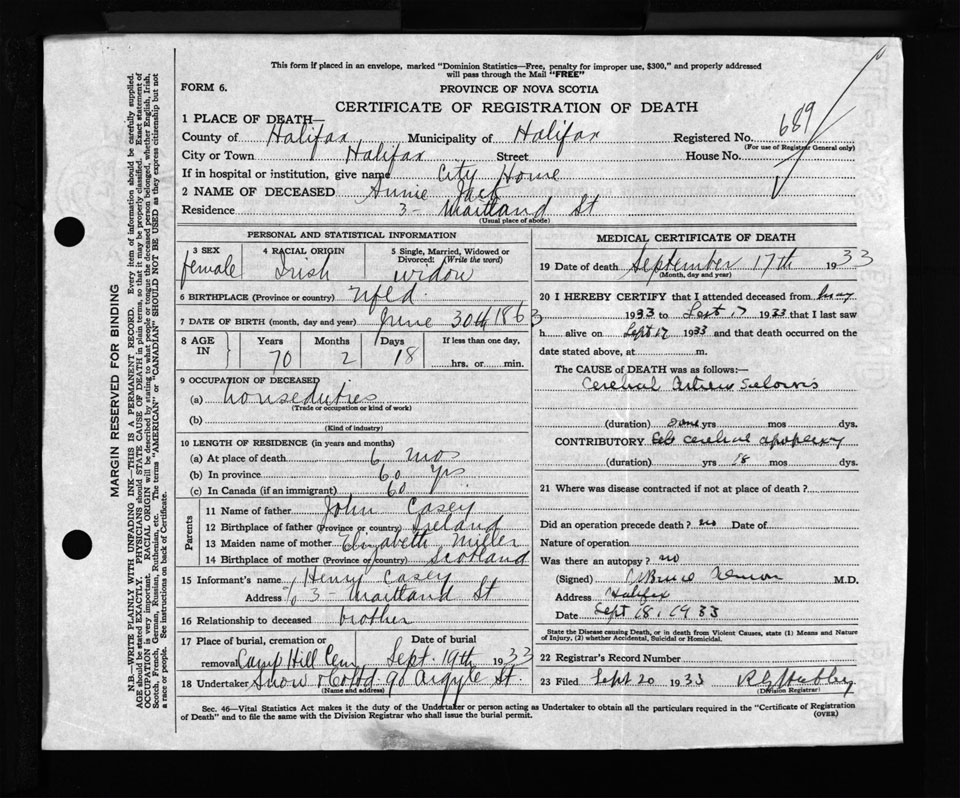 This form if placed in an envelope, marked "Dominion Statistics—Free, penalty for improper use, $300," and properly addressed
will pass through the Mail "FREE"
FORM 6.
PROVINCE OF NOVA SCOTIA
CERTIFICATE OF REGISTRATION OF DEATH
1 PLACE OF DEATH—
County of Halifax Municipality of Halifax Registered No. 689
(For use of Registrar General only)
City or Town Halifax Street House No.
If in hospital or institution, give name City Home
2 NAME OF DECEASED Annie Jack
Residence 3 - Maitland St
(Usual place of abode)
PERSONAL AND STATISTICAL INFORMATION
3 SEX 4 RACIAL ORIGIN 5 Single, Married, Widowed or
Divorced: (Write the word)
female Irish widow
6 BIRTHPLACE (Province or country) Nfld.
7 DATE OF BIRTH (month, day and year) June 30th 1863
8 AGE IN Years Months Days If less than one day,
70 2 18 hrs. or min.
9 OCCUPATION OF DECEASED
(a) houseduties
(Trade or occupation or kind of work)
(b)
(Kind of industry)
10 LENGTH OF RESIDENCE (in years and months)
(a) At place of death 6 mos
(b) In province 60 yrs.
(c) In Canada (if an immigrant) 60
Parents
11 Name of father John Casey
12 Birthplace of father (Province or country) Ireland
13 Maiden name of mother Elizabeth Miller
14 Birthplace of mother (Province or country) Scotland
15 Informant's name Henry Casey
Address % 3 - Maitland St
16 Relationship to deceased brother
17 Place of burial, cremation or Date of burial
removal Camp Hill Cem Sept. 19th 1933
18 Undertaker Snow & Co Ltd 90 Argyle St.
(Name and address)
MEDICAL CERTIFICATE OF DEATH
19 Date of death September 17th 1933
(Month, day and year)
20 I HEREBY CERTIFY that I attended deceased from
1933 to Sept 17 1933 that I last saw
h alive on Sept 17 1933 and that death occurred on the
date stated above, at m.
The CAUSE OF DEATH was as follows:—
Cerebral Arterio Sclerosis
(duration) yrs mos dys.
CONTRIBUTORY cerebral apoplexy
(duration) yrs 18 mos dys.
21 Where was disease contracted if not at place of death?
Did an operation precede death? no Date of
Nature of operation
Was there an autopsy? no
(Signed) M.D.
Address Halifax
Date Sept 18, 1933
State the Disease causing Death, or in death from Violent Causes, state (1) Means and Nature
of Injury, (2) whether Accidental, Suicidal or Homicidal.
22 Registrar's Record Number
23 Filed Sept 20 1933
(Division Registrar)
Sec. 46—Vital Statistics Act makes it the duty of the Undertaker or person acting as Undertaker to obtain all the particulars required in the "Certificate of Registration
of Death" and to file the same with the Division Registrar who shall issue the burial permit. (OVER)
MARGIN RESERVED FOR BINDING
N.B.—WRITE PLAINLY WITH UNFADING INK—THIS IS A PERMANENT RECORD. Every item of information should be carefully supplied.
AGE should be stated EXACTLY. PHYSICIANS should STATE CAUSE OF DEATH in plain terms, so that it may be properly classified. Exact statement of
OCCUPATION is very important. RACIAL ORIGIN will be described by stating to what people or tongue the deceased person belonged, whether English, Irish,
Scotch, French, German, Russian, Ruthenian, etc. The terms "AMERICAN" or "CANADIAN" SHOULD NOT BE USED as they express citizenship but not
a race or people. See instructions on back of Certificate.